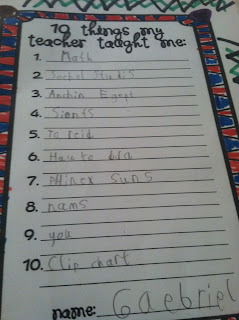 10 things my
teacher taught me:
1. Math
2. Sochol Studis
3. Anchin Egept
4. Sients
5. To reid
6. How to
7. PHinex Suns
8. nams
9. you
10. Clip chart
name: Gaebriel